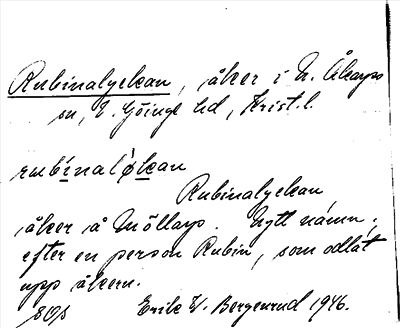 Rubinalyckan, åker i N. Åkarps
sn, V. Göinge hd, Krist. l.
rubinalykan
Rubinalyckan
åker å Möllarp. Nytt namn;
efter en person Rubin, som odlat
upp åkern.
Erik W. Bergenrud 1946.